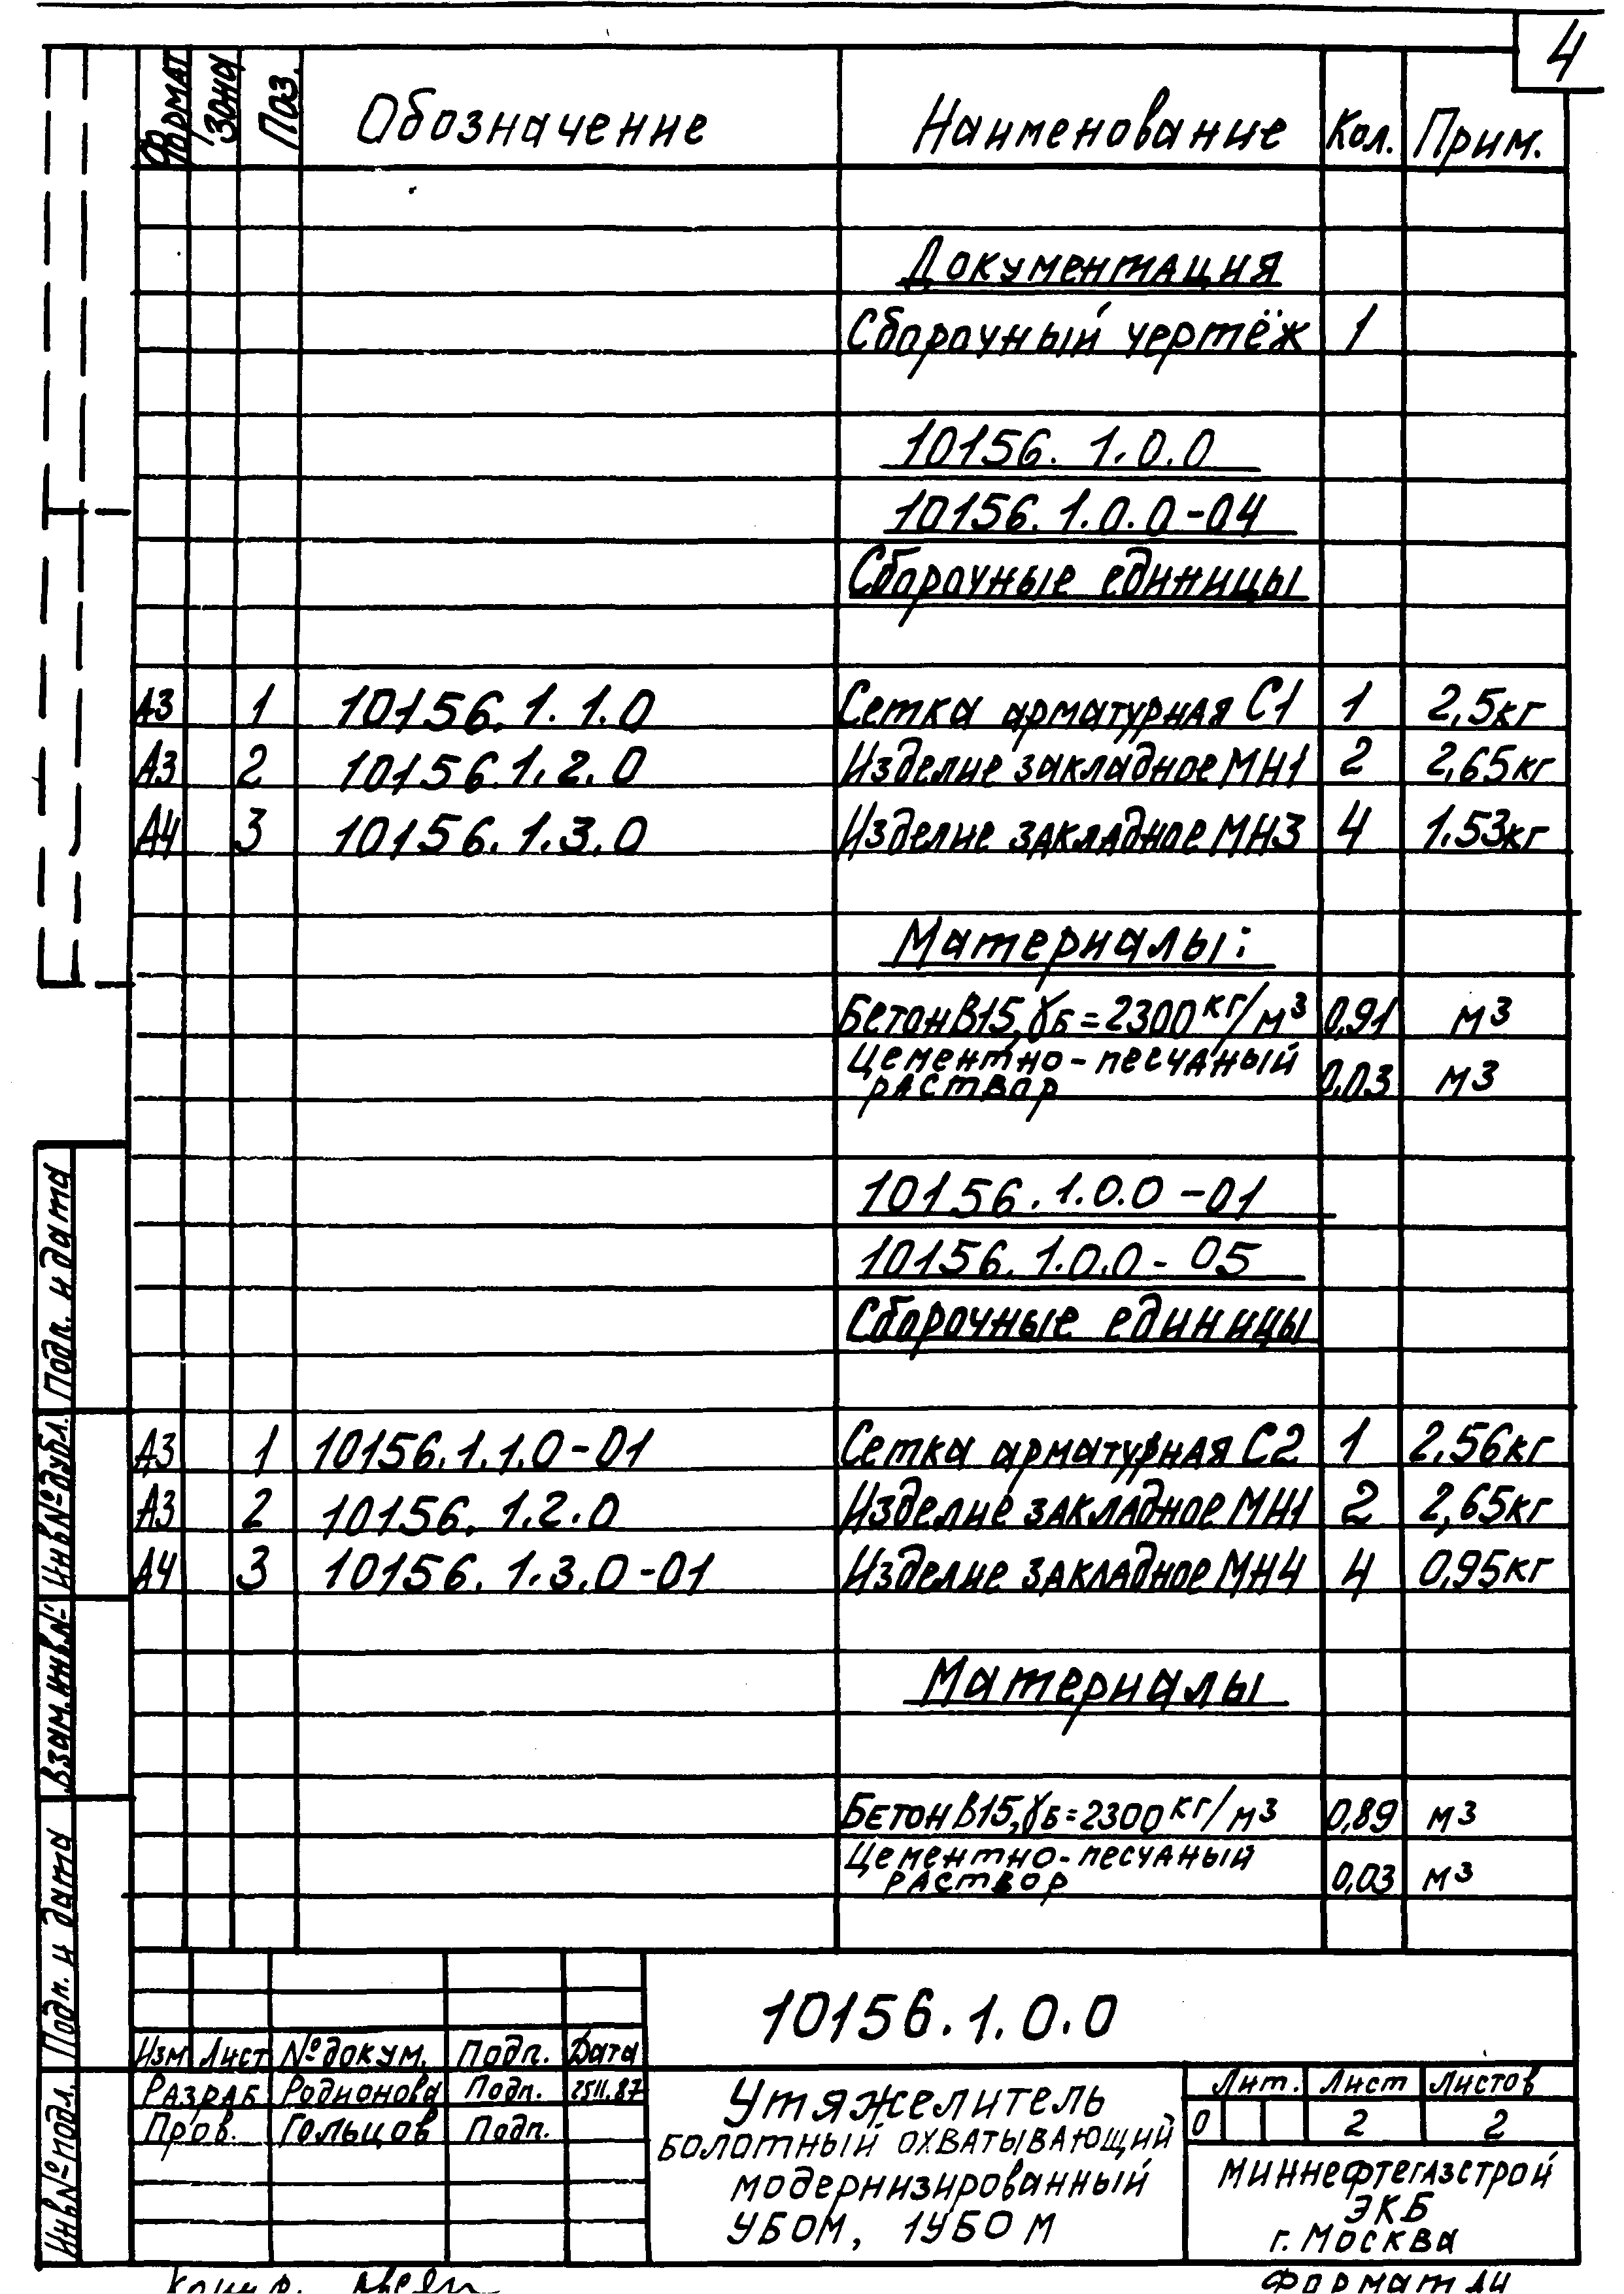 4
Формат Зона Поз. Обозначение Наименование Кол. Прим.
Документация
Сборочный чертёж 1
10156. 1.0.0
10156.1.0.0-04
Сборочные единицы
А3 1 10156.1.1.0 Сетка арматурная С1 1 2,5кг
А3 2 10156.1.2.0 Изделие закладное МН1 2 2,65кг
А4 3 10156.1.3.0 Изделие закладное МН3 4 1.53кг
Материалы:
Бетон В15, γб=2300кг/м3 0,91 м3
Цементно-песчаный
раствор 0,03 м3
10156.1.0.0-01
10156.1.0.0-05
Сборочные единицы
А3 1 10156.1.1.0-01 Сетка арматурная С2 1 2,56кг
А3 2 10156.1.2.0 Изделие закладное МН1 2 2,65кг
А4 3 10156.1.3.0-01 Изделие закладное МН4 4 0,95кг
Материалы
Бетон В15, γб=2300кг/м3 0,89 м3
Цементно-песчаный
раствор 0,03 м3
Подп. и дата
Инв№дубл.
Взам.инв.№
Подп. и дата
Инв№подл.
10156.1.0.0
Изм Лист №докум. Подп. Дата
Разраб. Родионова Подп. 25.11.87
Пров. Гольцов Подп.
Утяжелитель
болотный охватывающий
модернизированный
УБОМ, 1УБОМ
Лит. Лист Листов
0 2 2
Миннефтегазстрой
ЭКБ
г. Москва
Формат А4